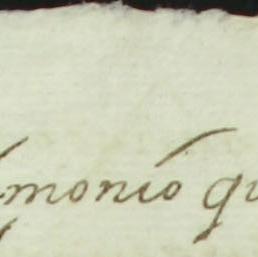 monio qu